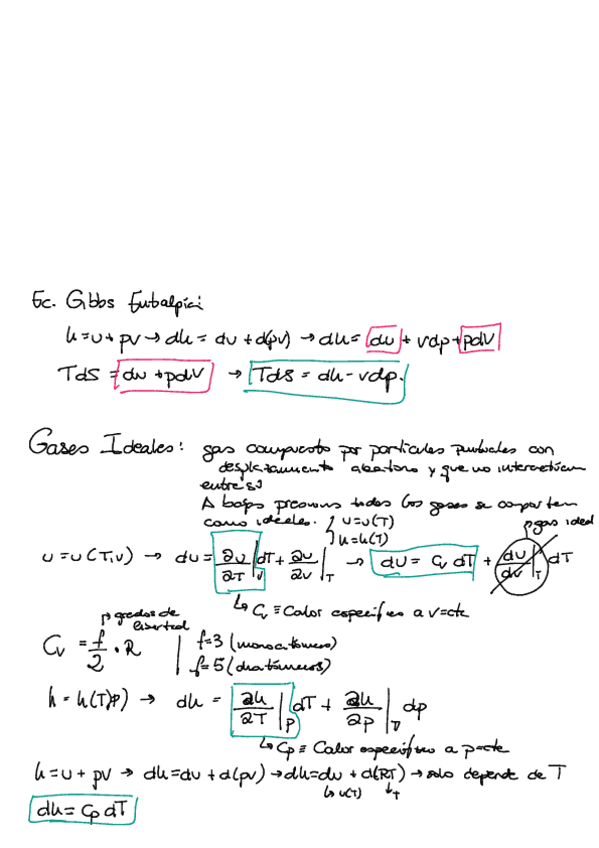 Ec. Gibbs Entalpía:
h = u + pv → dh = du + d(pv) → dh = du + vdp + pdV
TdS = du + pdV → TdS = dh - vdp.
Gases Ideales: gas compuesto por partículas puntuales con
desplazamiento aleatorio y que no interactúan
entre sí
A bajas presiones todos los gases se comportan
como ideales. { u = u(T)
h = h(T)
gas ideal
u = u(T,v) → du = ∂u/∂T|v dT + ∂u/∂v|T → du = Cv dT + du/dv|T dT
↳ Cv ≡ Calor específico a v=cte
grados de libertad
Cv = f/2 · R | f=3 (monoatómicos)
f=5 (diatómicos)
h = h(T,P) → dh = ∂h/∂T|P dT + ∂h/∂p|T dp
↳ Cp ≡ Calor específico a p=cte
h = u + pv → dh = du + d(pv) → dh = du + d(RT) → solo depende de T
↳ u(T) ↳ T
dh = Cp dT